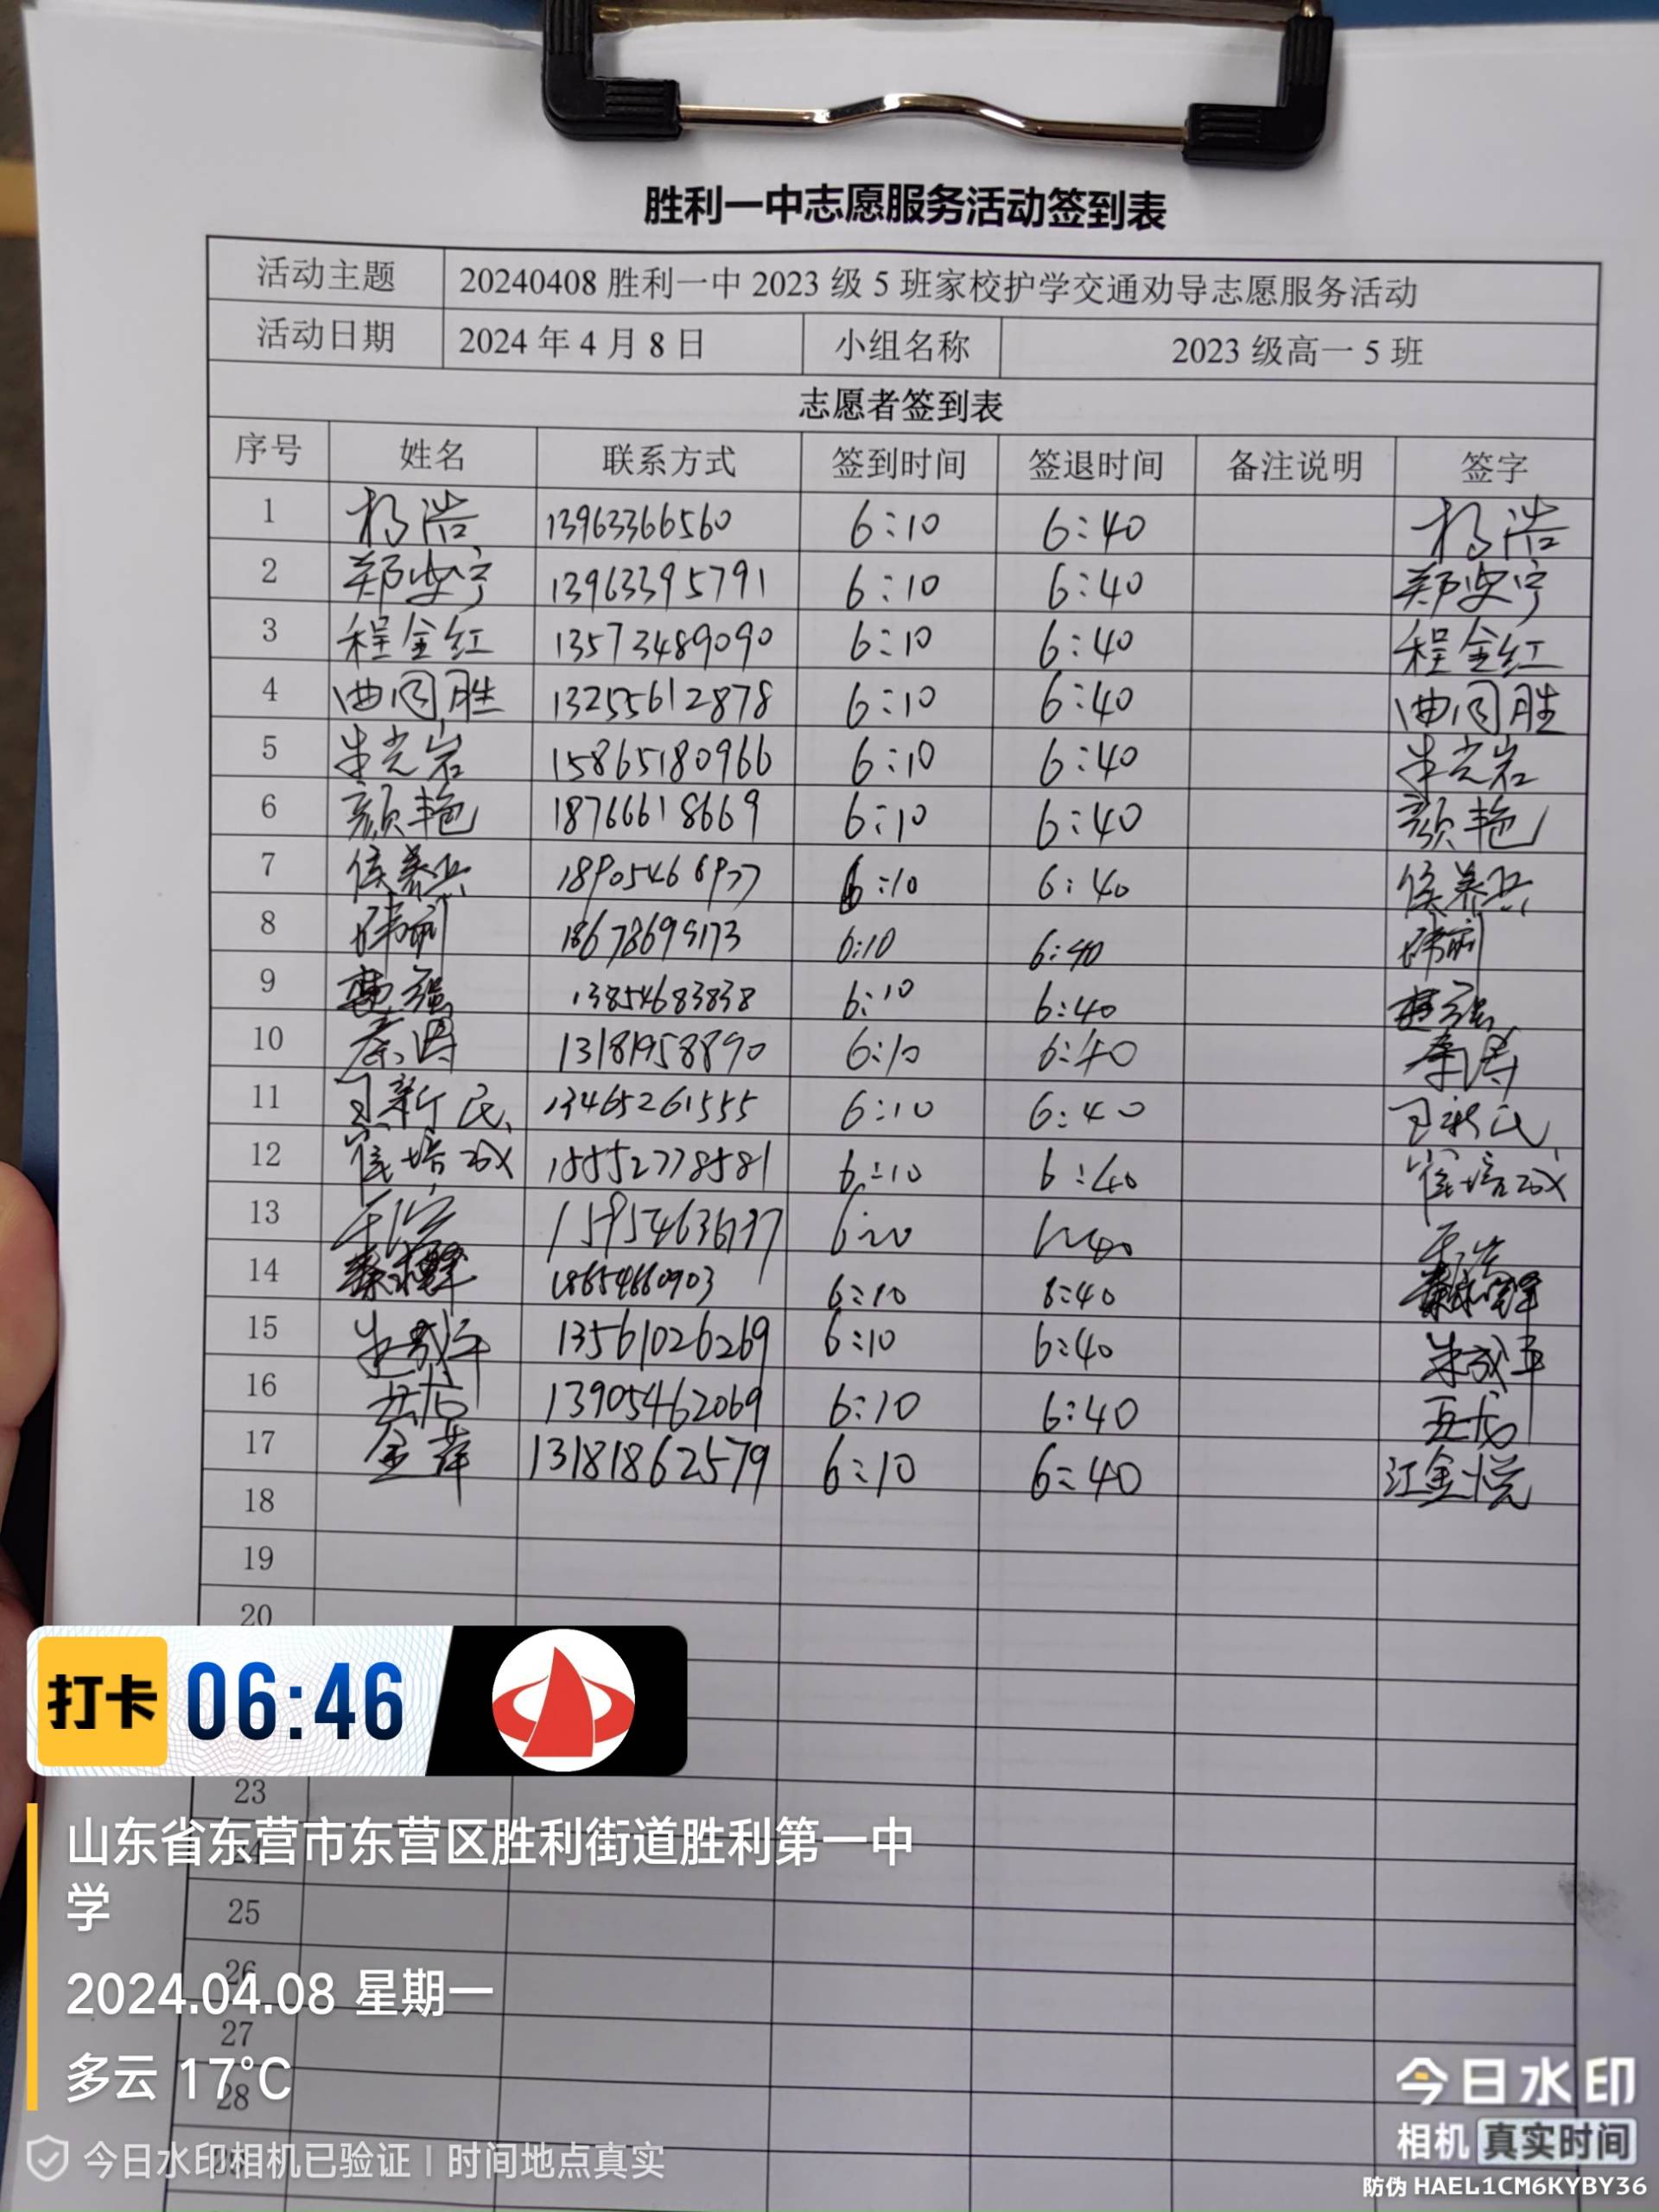 胜利一中志愿服务活动签到表
活动主题 20240408 胜利一中 2023 级 5 班家校护学交通劝导志愿服务活动
活动日期 2024 年 4 月 8 日 小组名称 2023 级高一 5 班
志愿者签到表
序号 姓名 联系方式 签到时间 签退时间 备注说明 签字
1 杨浩 13963366560 6:10 6:40 杨浩
2 郑安宁 13963395791 6:10 6:40 郑安宁
3 程金红 13573489090 6:10 6:40 程金红
4 曲同胜 13255612878 6:10 6:40 曲同胜
5 朱光岩 15865180966 6:10 6:40 朱光岩
6 颜艳 18766618669 6:10 6:40 颜艳
7 侯养兵 6:10 6:40 侯养兵
8 6:10 6:40
9 13854683838 6:10 6:40
10 秦涛 13181958890 6:10 6:40 秦涛
11 新民 13465261555 6:10 6:40 新民
12 15552778581 6:10 6:40
13
14 18654660903 6:10 6:40
15 朱成军 13561026269 6:10 6:40 朱成军
16 13905462069 6:10 6:40
17 金萍 13181862579 6:10 6:40 江金悦
18
19
20
打卡 06:46
23
山东省东营市东营区胜利街道胜利第一中
24
学
25
26
2024.04.08 星期一
27
多云 17°C
28
今日水印
相机 真实时间
今日水印相机已验证 | 时间地点真实
防伪 HAEL1CM6KYBY36